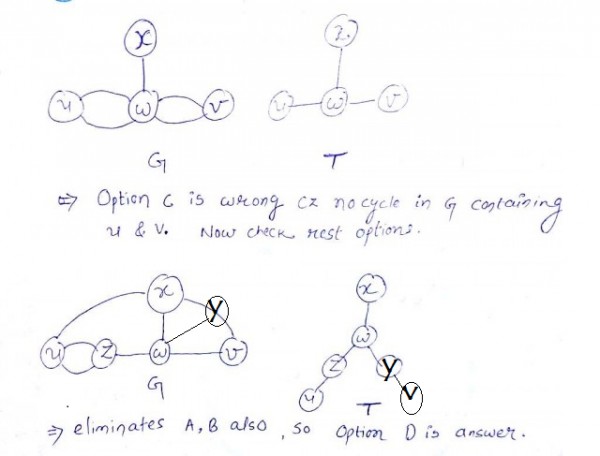 x z
u w v u w v
G T
⇒ Option C is wrong cz no cycle in G containing
u & v. Now check rest options.
x x
y w
u z w v z y
G u T v
⇒ eliminates A, B also, so Option D is answer.